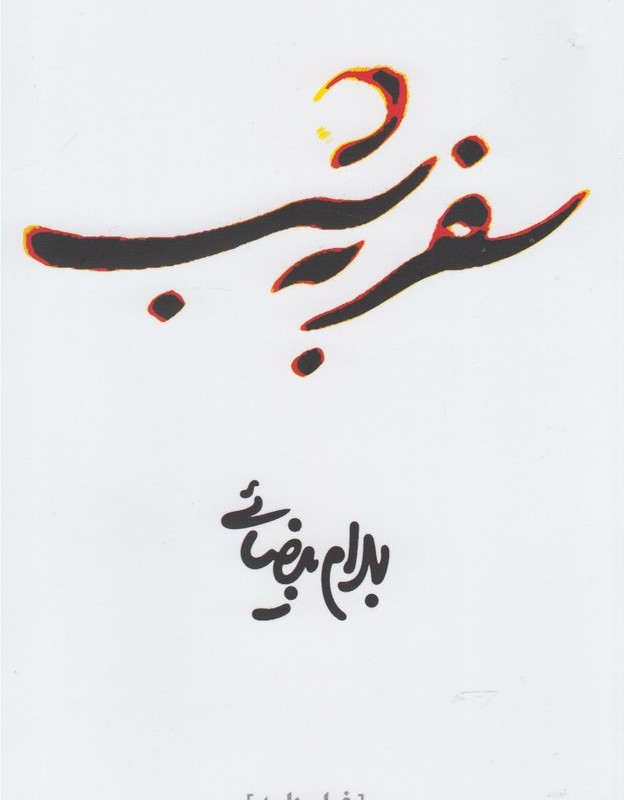 سفر به شب
بهرام بیضائی